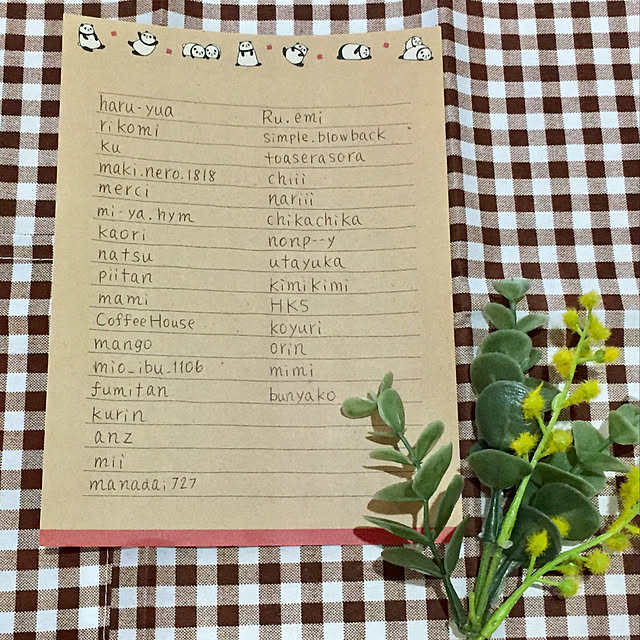 haru-yua
rikomi
ku
maki.nero.1818
merci
mi-ya.hym
kaori
natsu
piitan
mami
CoffeeHouse
mango
mio_ibu_1106
fumitan
kurin
anz
mii
manadai727
Ru.emi
simple.blowback
toaserasora
chiii
nariii
chikachika
nonp--y
utayuka
kimikimi
HKS
koyuri
orin
mimi
bunyako